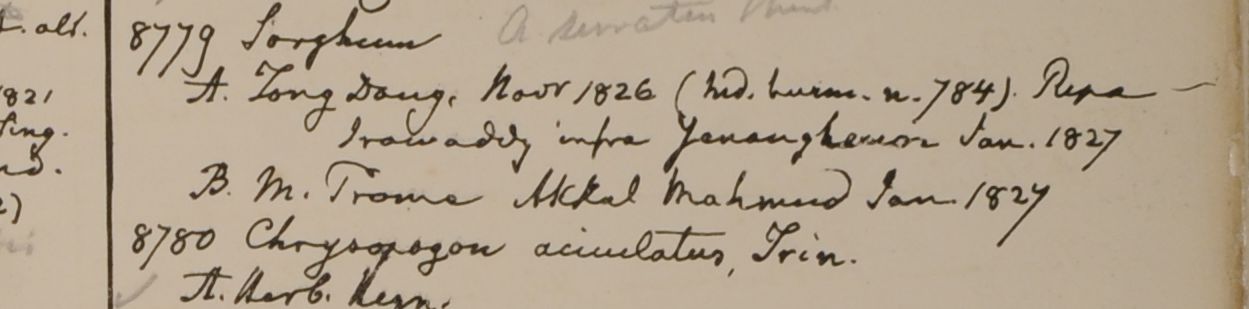 t. alt.
1821
Sing.
8779 Sorghum
A. Tong Dong. Novr 1826 (hd. burm. n. 784). Ripa
Irawaddy infra Yenangheum Jan. 1827
B. M. Trome Akkal Mahmud Jan 1827
8780 Chrysopogon aciculatus, Trin.
A. Herb. Heyn.